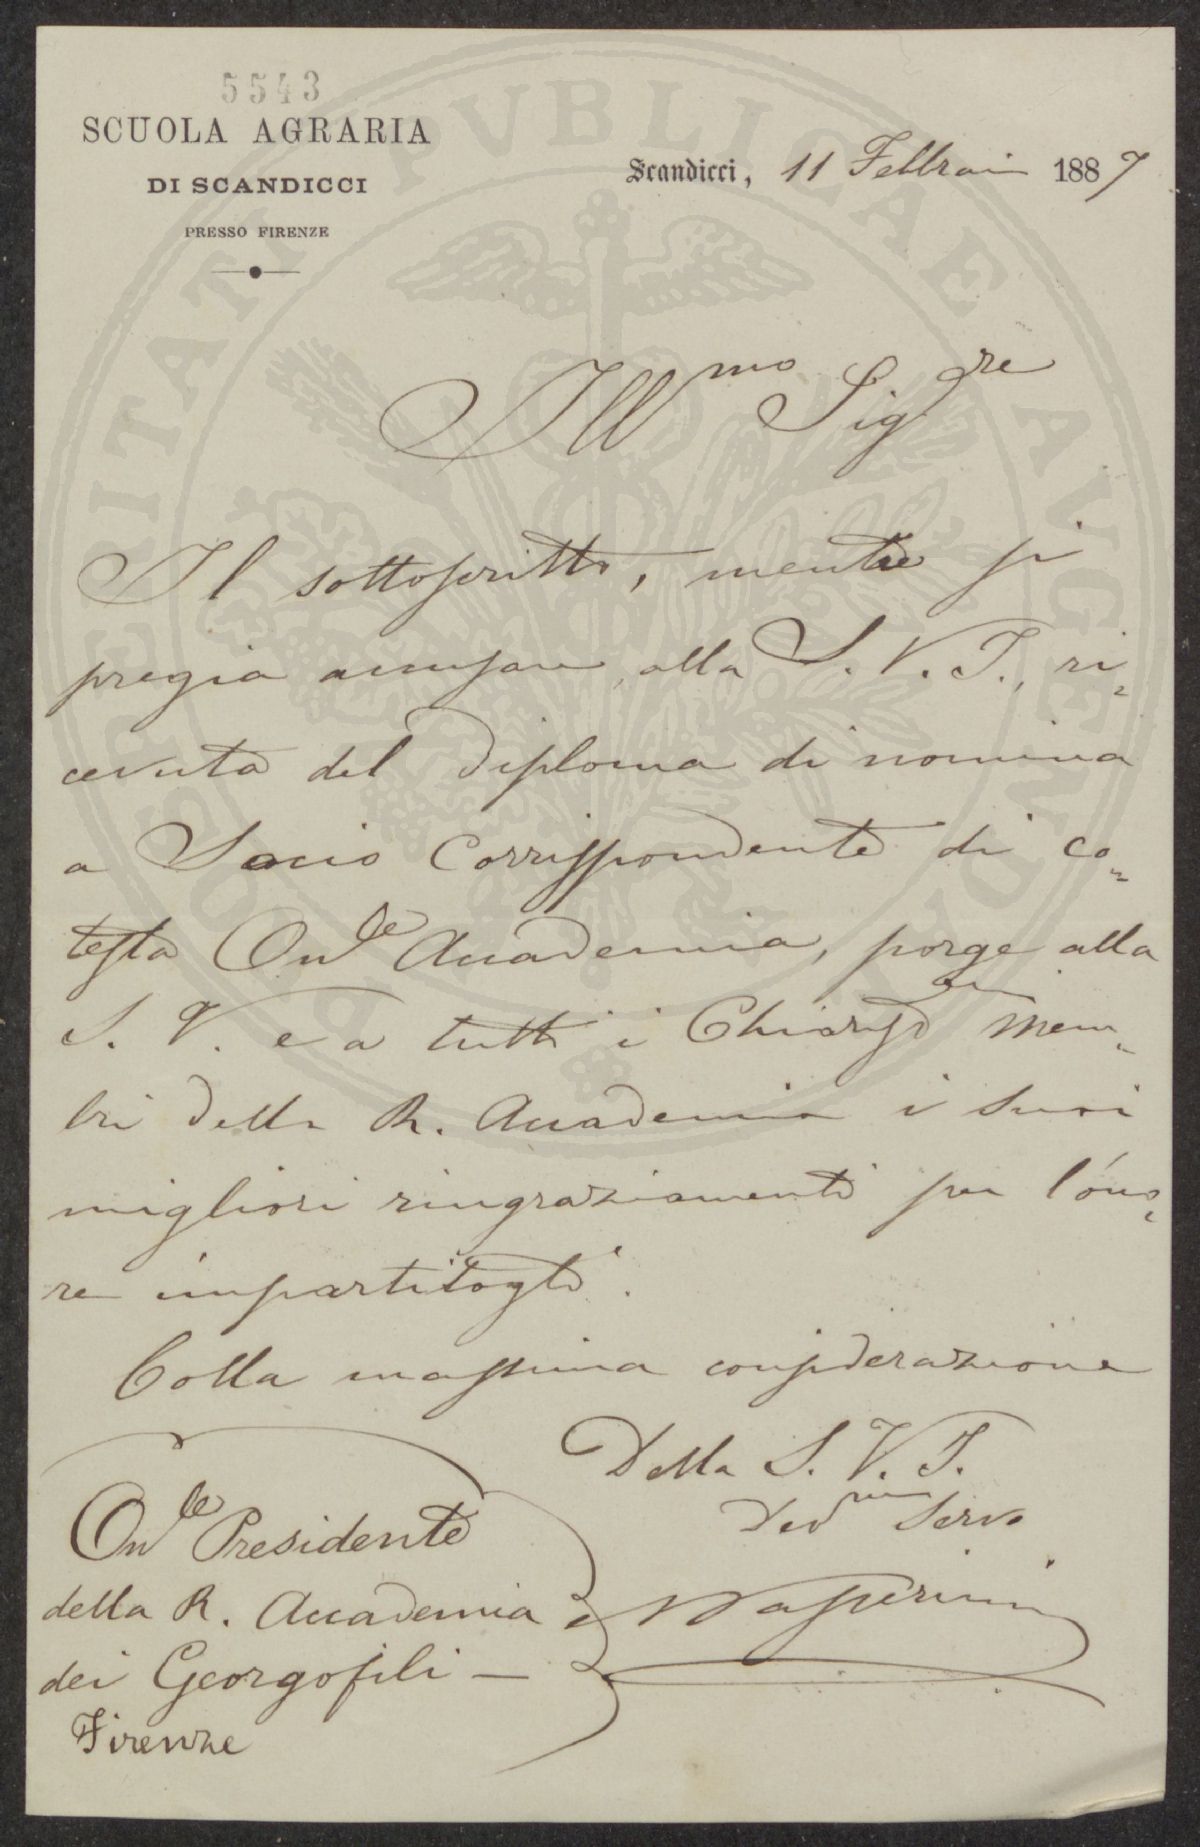 5543
SCUOLA AGRARIA
DI SCANDICCI
PRESSO FIRENZE
Scandicci, 11 Febbraio 1887
Ill mo Sig re
Il sottoscritto, mentre si
pregia accusare alla S. V. I., ri=
cevuta del diploma di nomina
a Socio Corrispondente di co=
testa On le Accademia, porge alla
S. V. e a tutti i Chiariss mi Mem=
bri della R. Accademia i suoi
migliori ringraziamenti per l'ono=
re impartitogli.
Colla massima considerazione
Della S. V. I.
Dev mo Servo
On le Presidente
della R. Accademia
dei Georgofili —
Firenze
PROSPERITATI PVBLICAE AVGENDAE